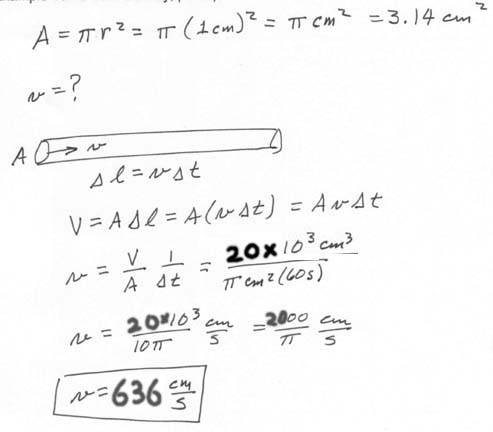 A = πr² = π(1cm)² = π cm² = 3.14 cm²
v = ?
A v
Δl = vΔt
V = AΔl = A(vΔt) = AvΔt
v = V/A 1/Δt = 20×10³ cm³/π cm²(60s)
v = 20×10³/10π cm/s = 2000/π cm/s
v = 636 cm/s